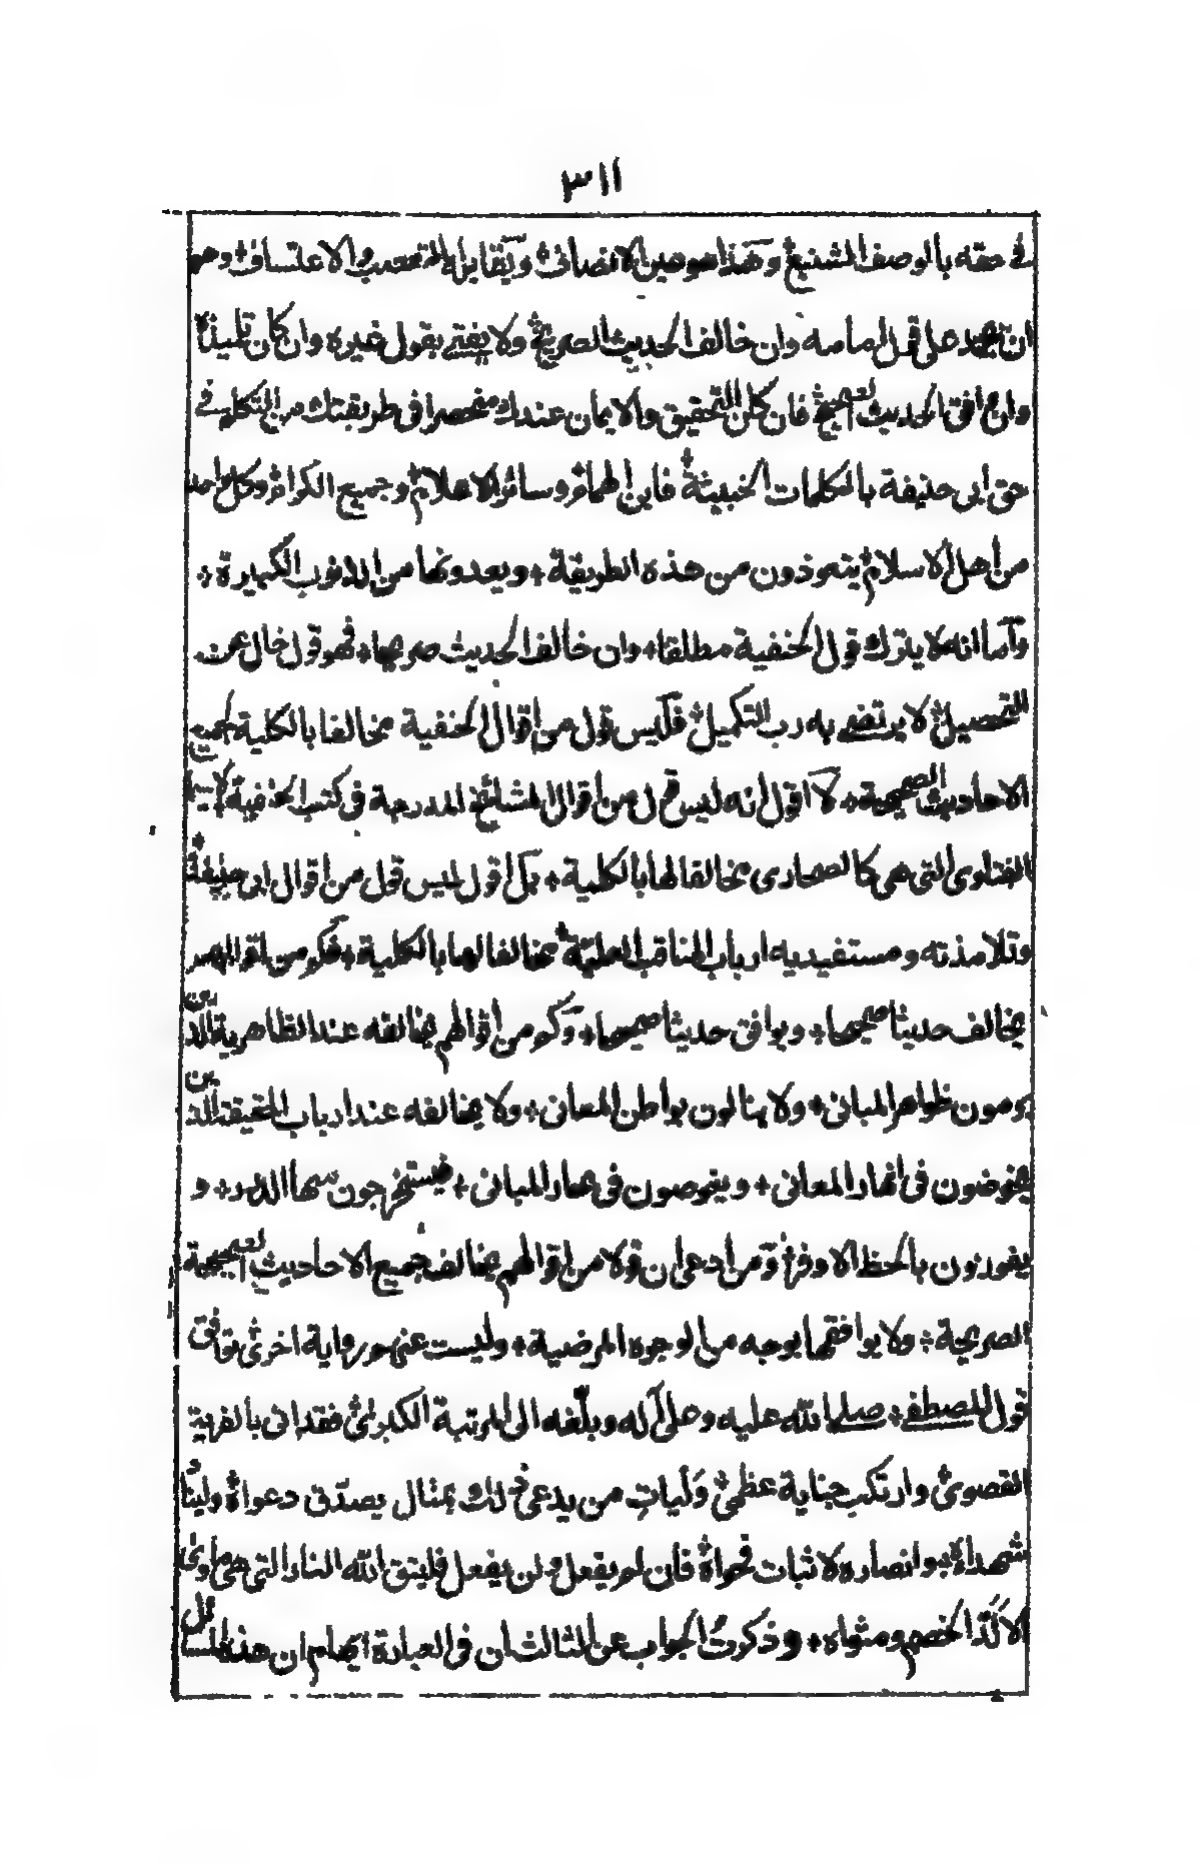 ٣١١
في حقه بالوصف الشنيع وهذا هو عين الانصاف + ويقابله التعصب والاعتساف + وهو
ان يجمد على قول امامه وان خالف الحديث الصريح ولا يفتي بقول غيره وان كان تلميذه
وان وافق الحديث الصحيح فان كان التحقيق والايمان عندك منحصرا في طريقتك من التكلم في
حق ابي حنيفة بالكلمات الخبيثة + فابن الهمام وسائر الاعلام وجميع الكرام وكل واحد
من أهل الاسلام يتعوذون من هذه الطريقة + ويعدونها من الذنوب الكبيرة +
وآما انه لا يترك قول الحنفية مطلقا + وان خالف الحديث صريحا + فهو قول خال عن
التحصيل لا يرتضي به رب التكميل فليس قول من اقوال الحنفية مخالفا بالكلية لجميع
الاحاديث الصحيحة + لا اقول انه ليس قول من اقوال المشائخ المدرجة في كتب الحنفية لا سيما
الفتاوى التي هي كالصحارى مخالفا لها بالكلية + بل اقول ليس قول من اقوال ابي حنيفة +
وتلامذته ومستفيديه ارباب المناقب العلية + مخالفا لها بالكلية + فكم من اقوالهم
يخالف حديثا صحيحا + ويوافق حديثا صحيحا + وكم من اقوالهم يخالفه عند الظاهرية الذين
يرمون ظواهر المباني + ولا ينالون بواطن المعاني + ولا يخالفه عند ارباب الحقيقة الذين
يخوضون في انهار المعاني + ويغوصون في بحار المباني + فيستخرجون منها الدرر + و
يفوزون بالحظ الاوفر ومن ادعى ان قولا من اقوالهم يخالف جميع الاحاديث الصحيحة
الصريحة + ولا يوافقها بوجه من الوجوه المرضية + وليست عنهم رواية اخرى توافق
قول المصطفى + صلى الله عليه وعلى آله وبلغه الى المرتبة الكبرى فقد اتى بالفرية
القصوى وارتكب جناية عظمى وليات من يدعي ذلك بمثال يصدق دعواه وليناد
شهداءه وانصاره لاثبات فحواه فان لم يفعل ولن يفعل فليتق الله النار التي هي ماوى
الالد الخصم ومثواه + وذكرت الجواب عن الثالث ان في العبارة ايهام ان هذه المسائل